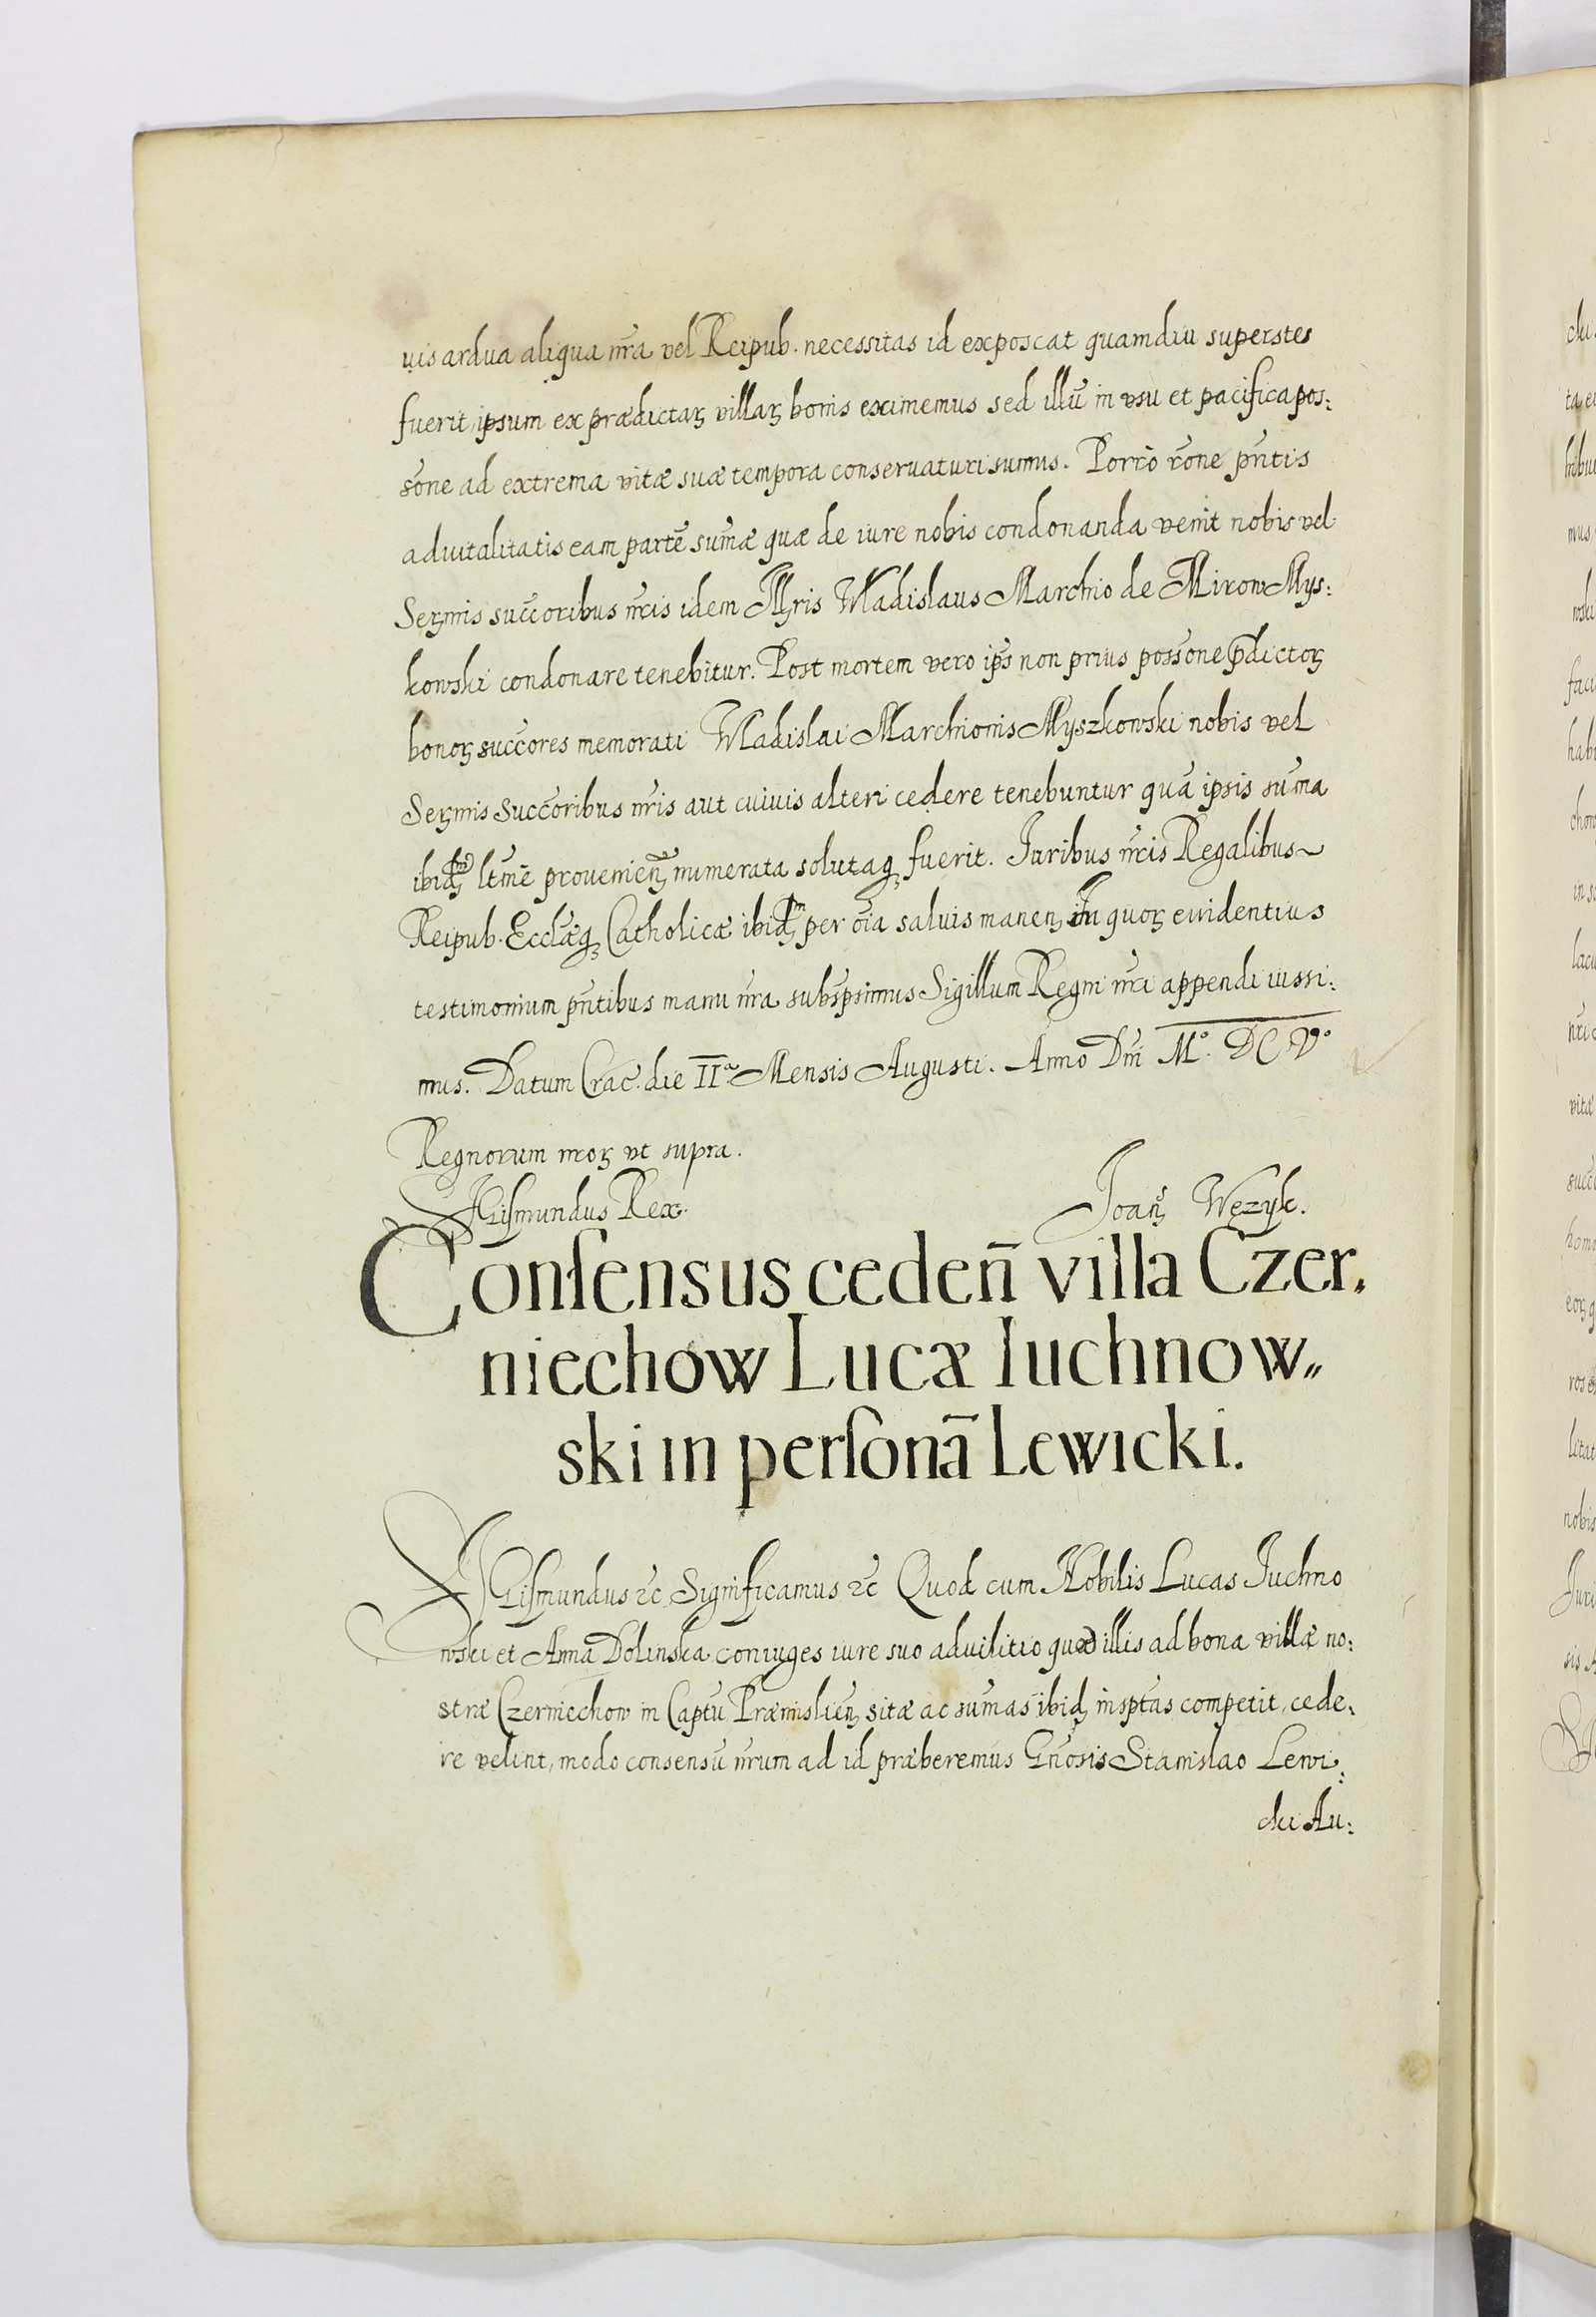 uis ardua aliqua nr̃a vel Reipub. necessitas id exposcat quamdiu superstes
fuerit, ipsum ex prædictaꝝ villaꝝ bonis eximemus sed illũ in vsu et pacifica pos:
s̃one ad extrema vitæ suæ tempora conseruaturi sumus. Porrò r̃one pñtis
aduitalitatis eam partẽ sum̃æ quæ de iure nobis condonanda venit nobis vel
Serꝫmis succ̃oribus nr̃is idem Mꝫris Wladislaus Marchio de Mirow Mys:
kowski condonare tenebitur. Post mortem vero ip̃s non prius poss̃one p̃dictoꝝ
bonoꝝ succ̃ores memorati Wladislai Marchionis Myszkowski nobis vel
Serꝫmis Succ̃oribus nr̃is aut cuiuis alteri cedere tenebuntur quã ipsis sum̃a
ibidꝫ lt̃me prouenienꝫ numerata solutaqꝫ fuerit. Iuribus nr̃is Regalibus
Reipub. Eccl̃æqꝫ Catholicæ ibidꝫ per oĩa saluis manenꝫ In quoꝝ euidentius
testimonium pñtibus manu nr̃a subsp̃simus Sigillum Regni nr̃i appendi iussi:
mus. Datum Crac̃. die IIª Mensis Augusti. Anno Dm̃ M°. DC V°
Regnorum nr̃oꝝ vt supra.
Sigiſmundus Rex. Joanꝫ Węzyk.
Conſensus ceden̄ villa Czer„
niechow Lucæ Iuchnow„
ski in perſonā Lewicki.
Sigiſmundus ꝛc̃ Significamus ꝛc̃ Quod cum Nobilis Lucas Juchno
wski et Anna Dolinska coniuges iure suo aduilitio quod illis ad bona villæ no:
stræ Czerniechow in Captũ Præmislienꝫ sitæ ac sum̃as ibidꝫ inspt̃as competit, cede:
re velint, modo consensũ nr̃um ad id præberemus Gñosis Stanislao Lewi:
cki Au: